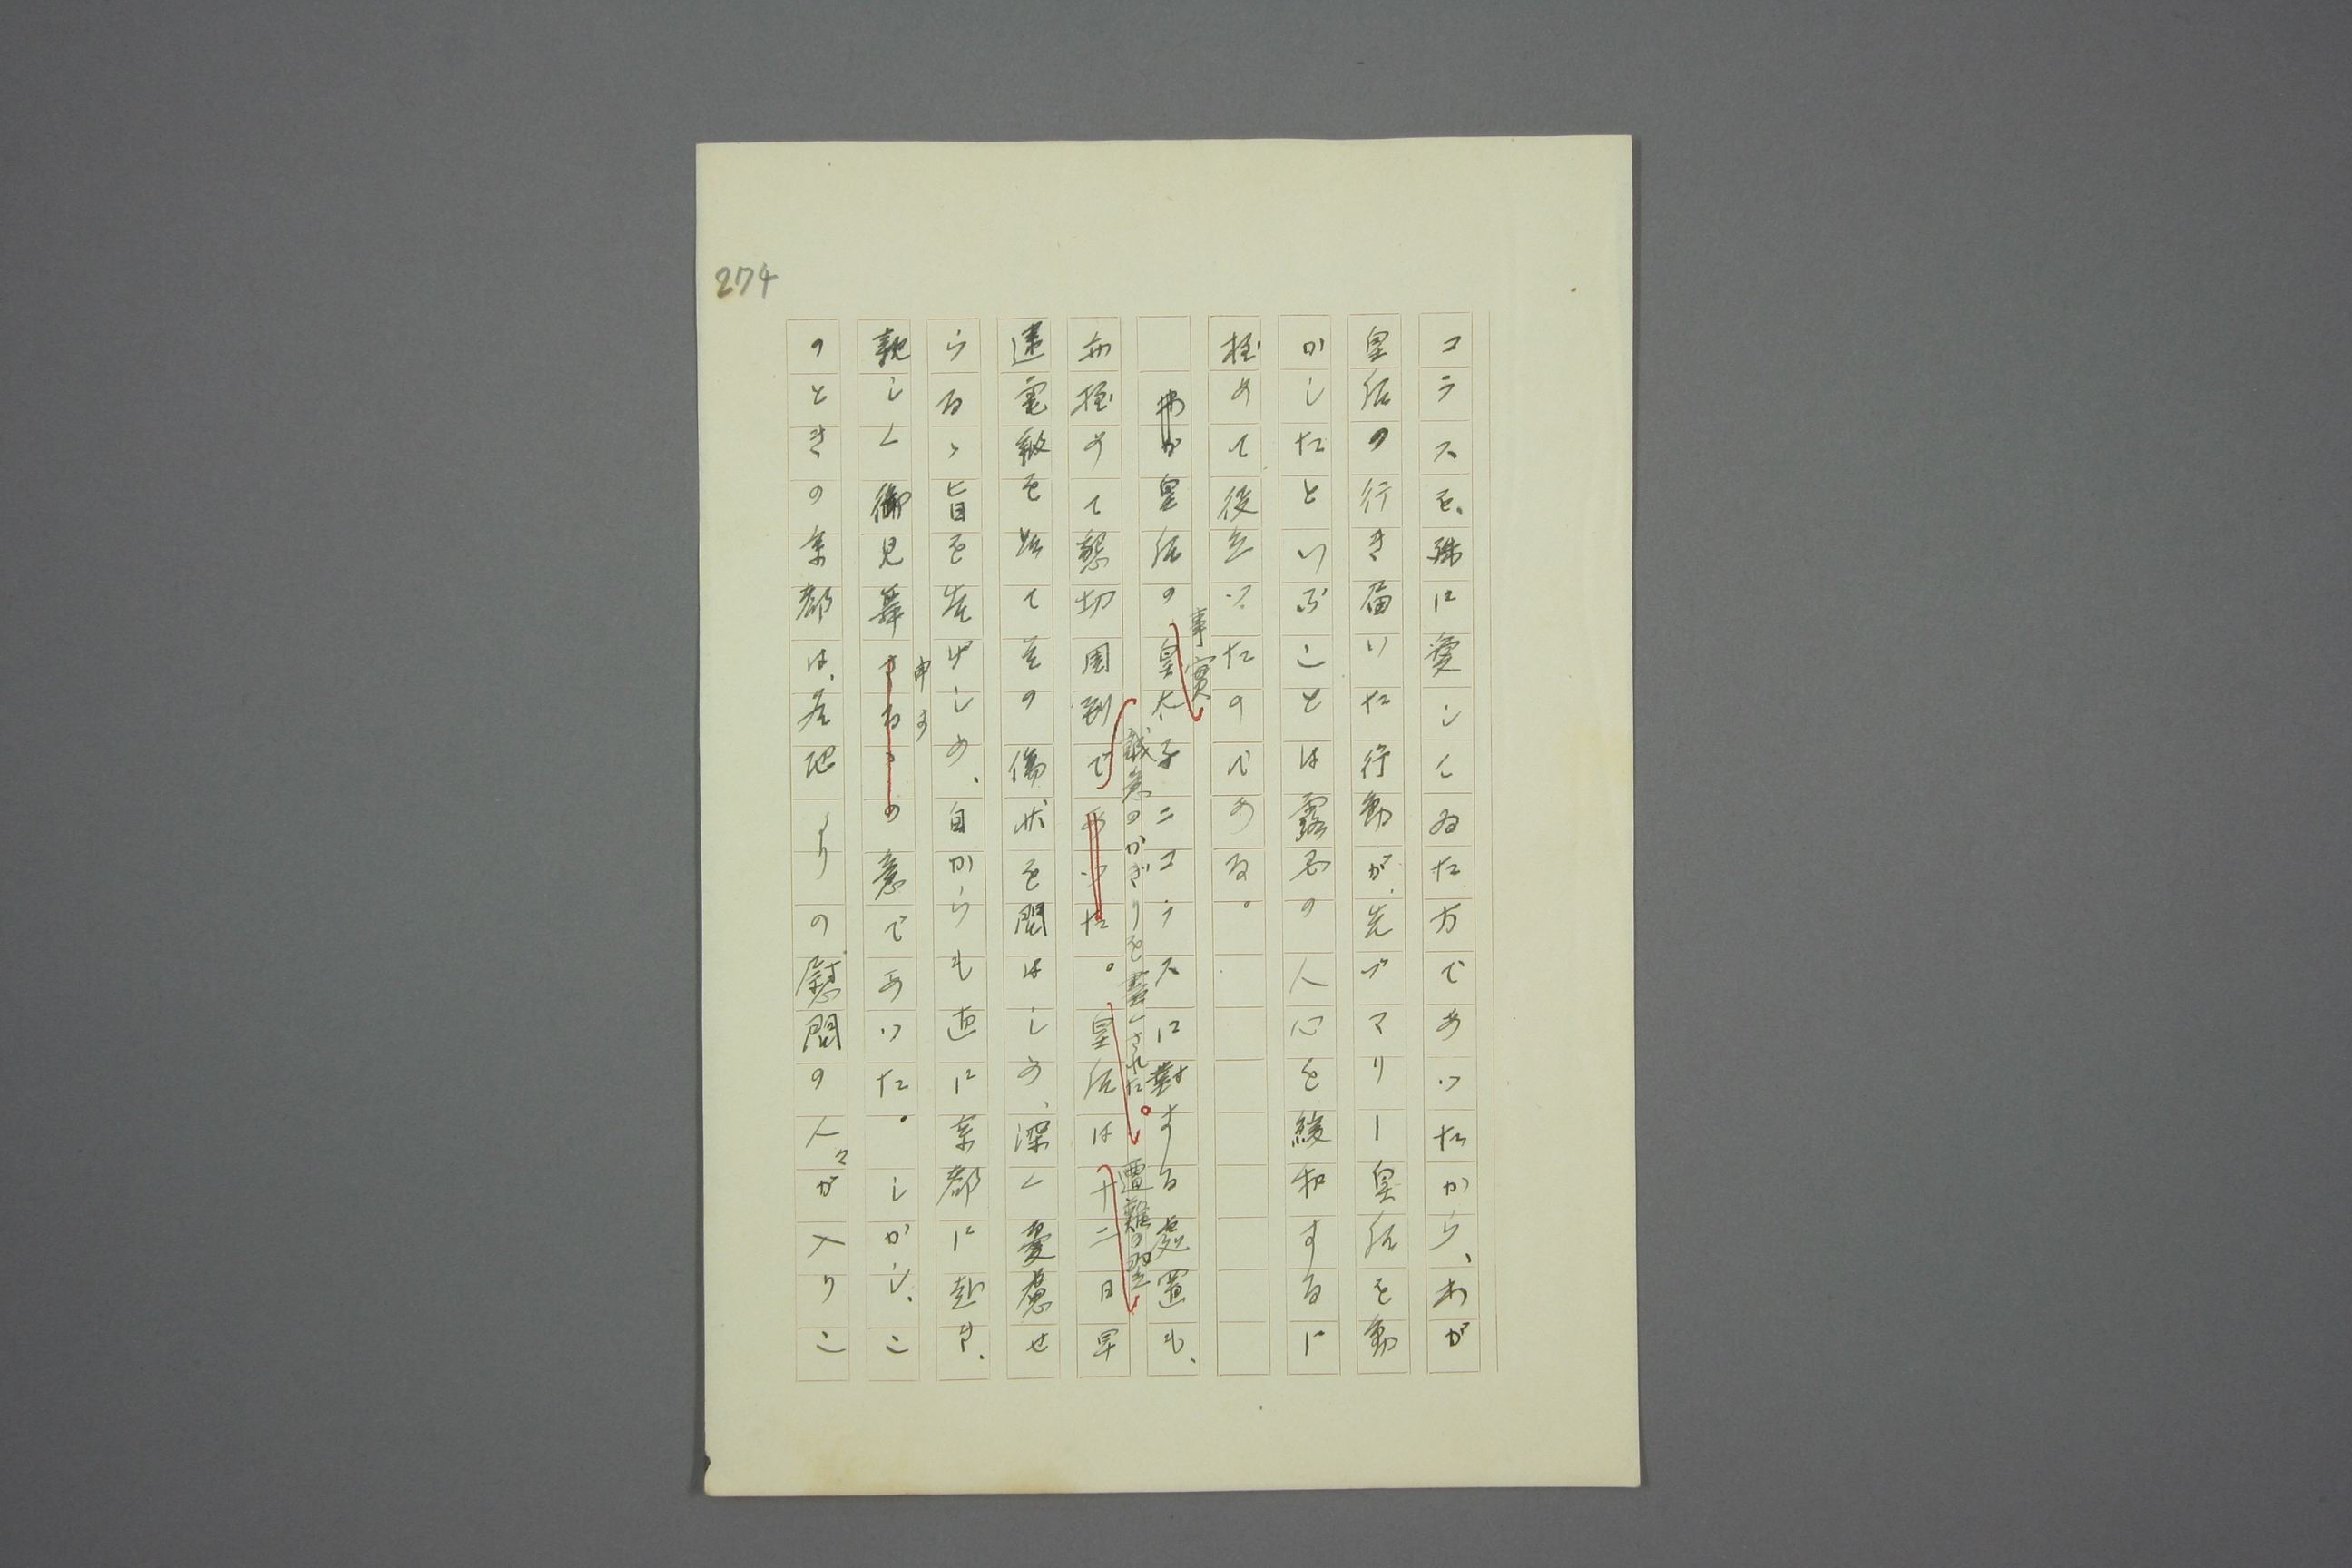 274
コラスを、殊に愛してゐた方であつたから、わが
皇后の行き届いた行動が、先づマリー皇后を動
かしたといふことは露国の人心を緩和するに
極めて役立つたのである。
事實、
わが皇后の皇太子ニコラスに對する處置も、
誠意のかぎりを盡くされた。遭難の翌
亦極めて懇切周到であつた。皇后は十二日早
速電報を以て其の傷状を問はしめ、深く憂慮せ
らるゝ旨を告げしめ、自からも直に京都に赴き、
申す
親しく御見舞さるゝの意であつた。しかし、こ
のときの京都は、各地よりの慰問の人々が入りこ